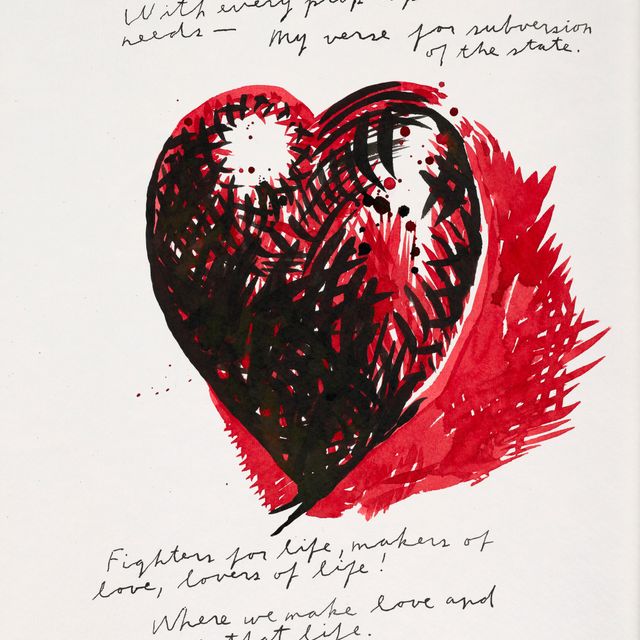 With every prop
needs — My verse for subversion
of the state.
Fighters for life, makers of
love, lovers of life!
Where we make love and
that life.